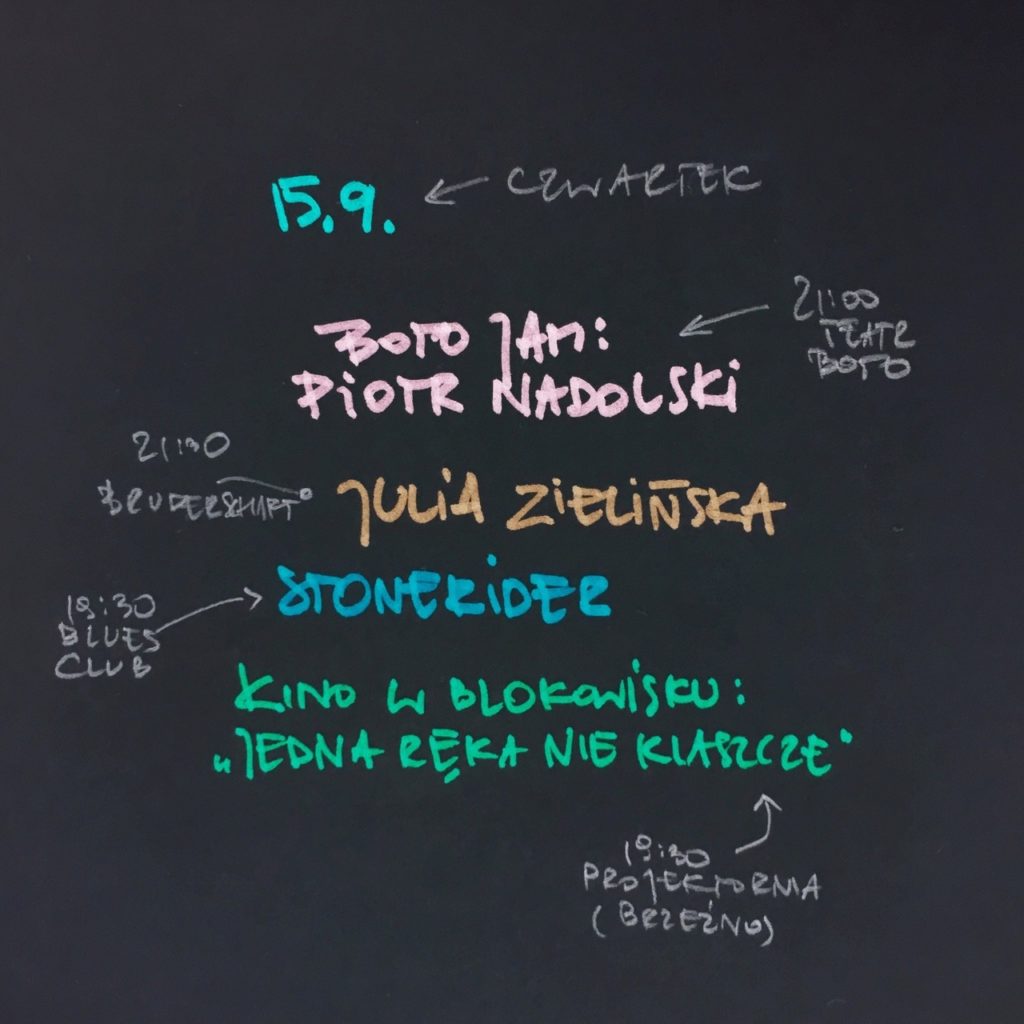 15.9. ← CZWARTEK
BOTO JAM:
PIOTR NADOLSKI
21:00
TEATR
BOTO
21:30
BRUDERSHAFT
JULIA ZIELIŃSKA
STONERIDER
19:30
BLUES
CLUB
KINO W BLOKOWISKU:
„JEDNA RĘKA NIE KLASZCZE"
19:30
PROJEKTORNIA
(BRZEŹNO)